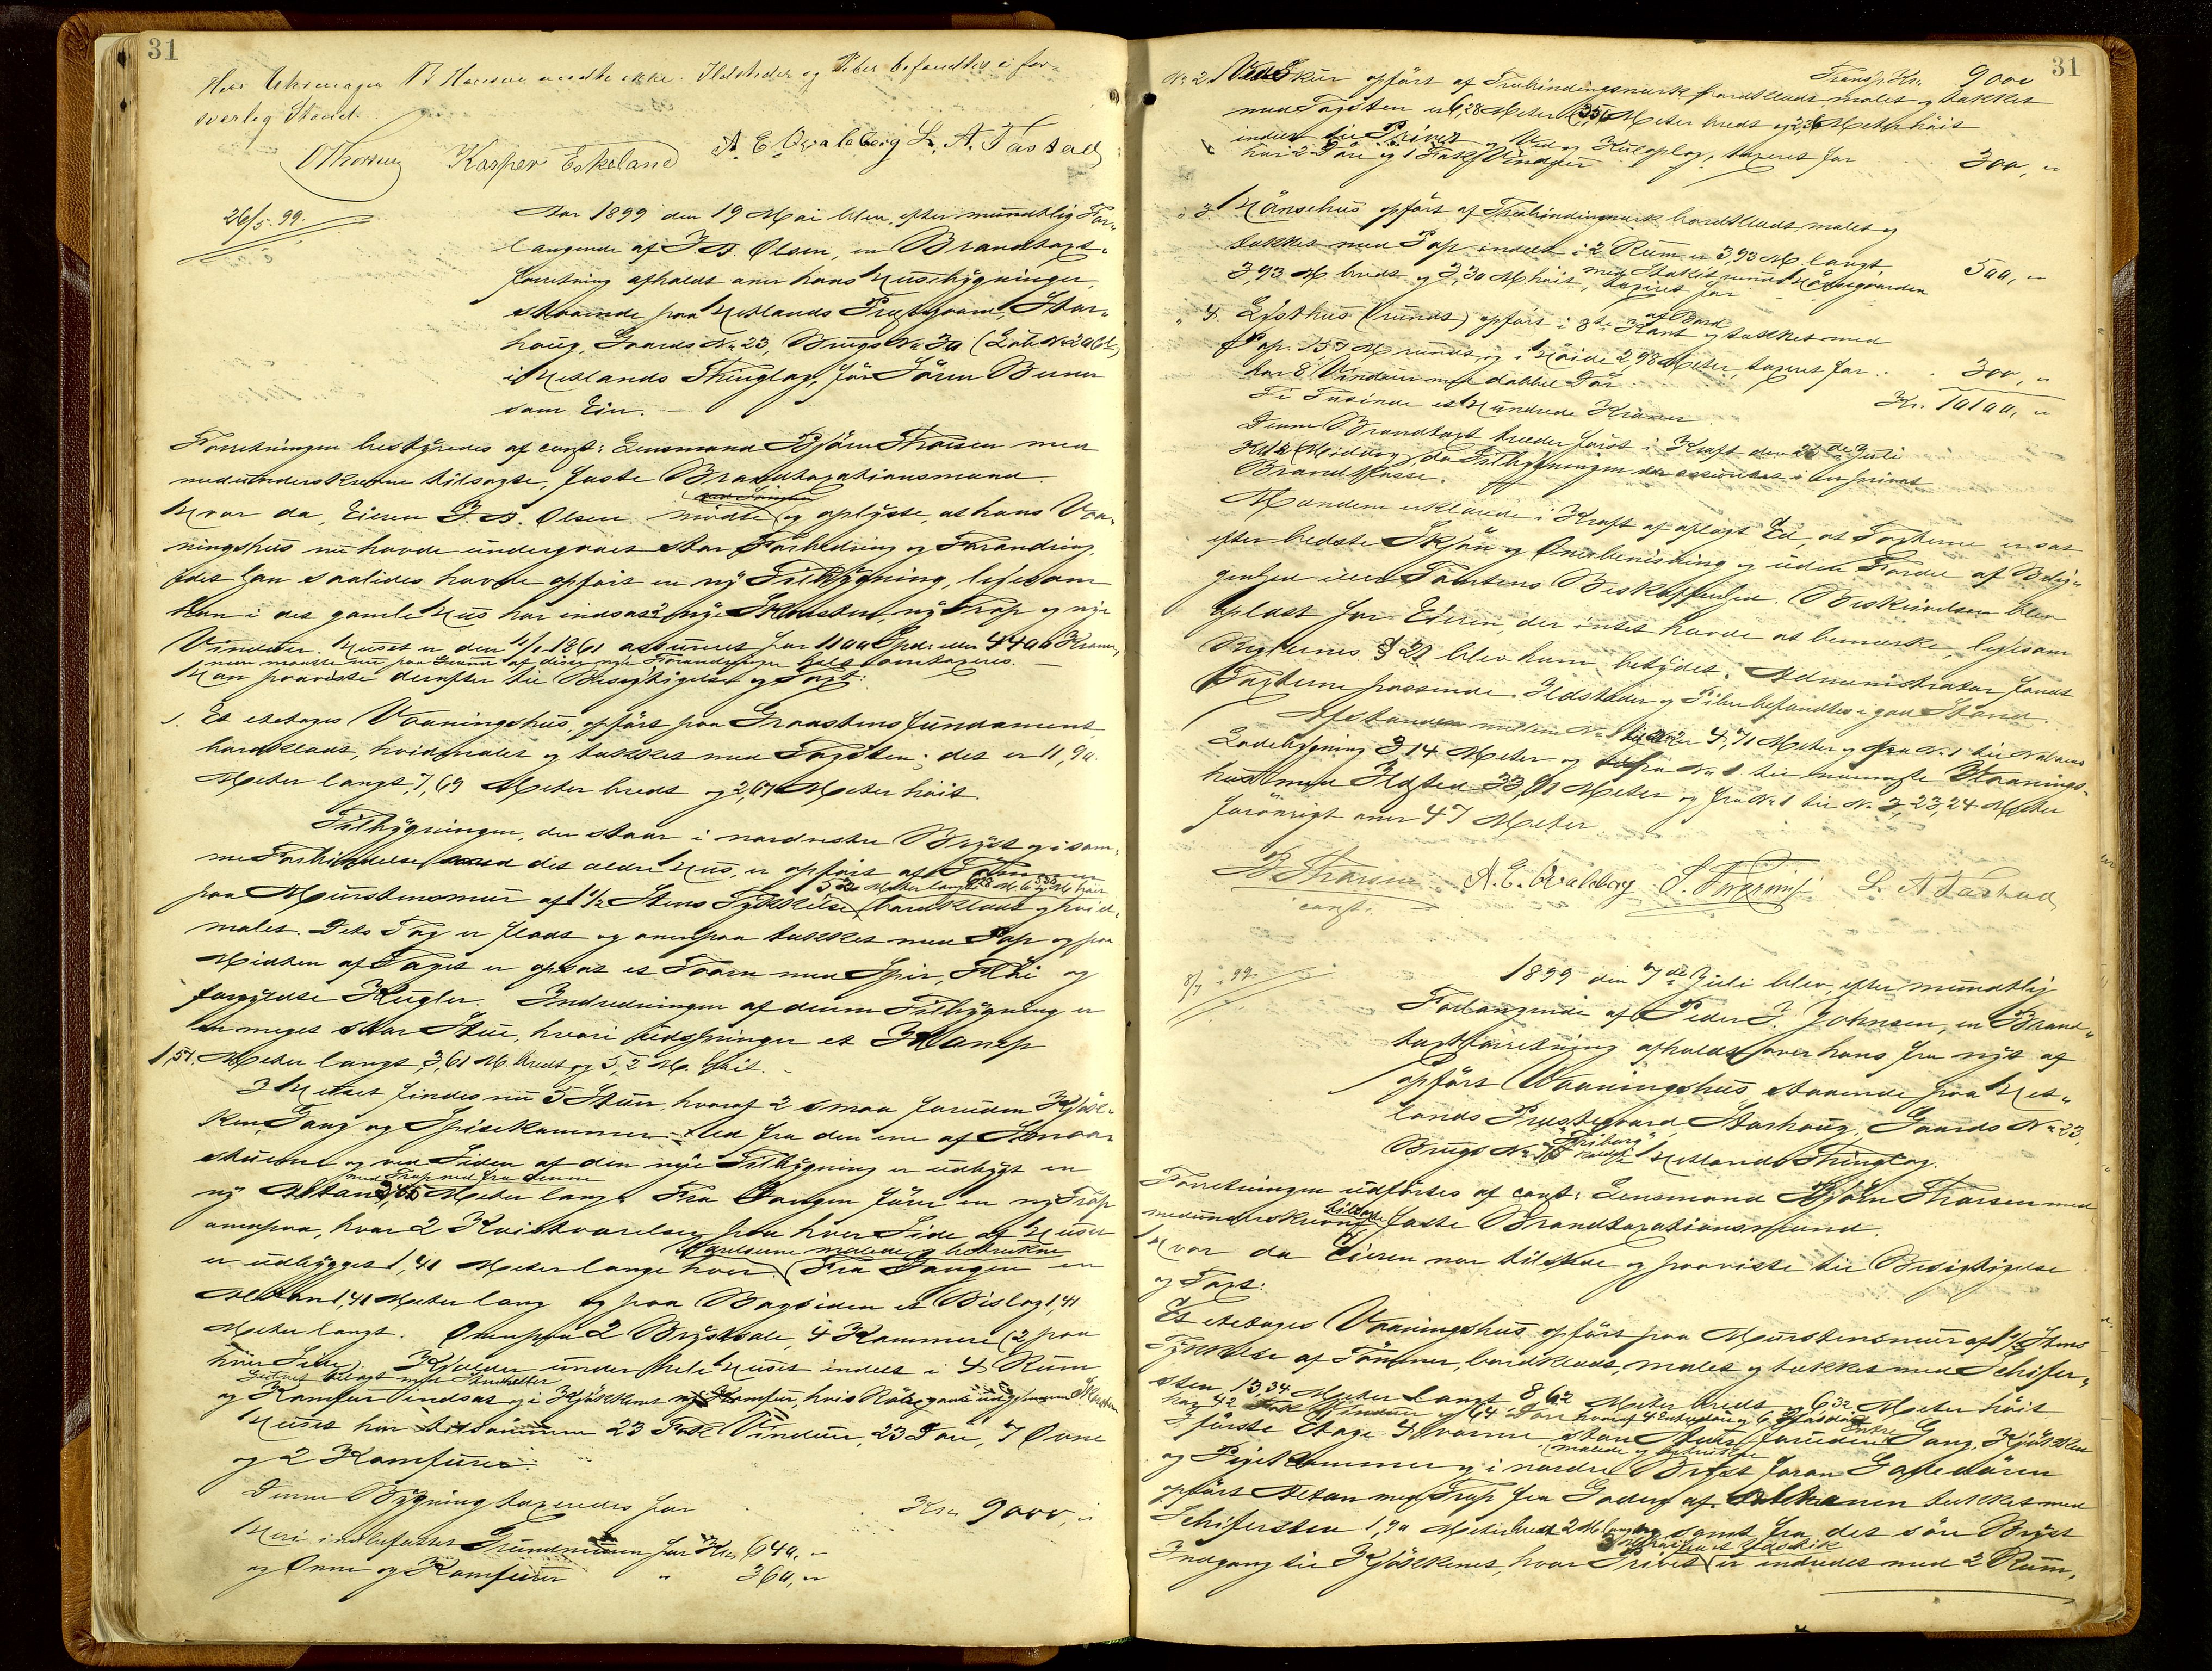 31
Hr. B. Hansen mødte ikke. Ildsteder og Piber befandtes i for-
svarlig Stand.
Kasper Eskeland A. E. Qvaleberg L. A. Tastad
26/5. 99.
Aar 1899 den 19 Mai blev, efter mundtlig For-
langende af J. B. Olsen, en Brandtaxt-
forretning afholdt over hans Husbygninger,
staaende paa Hetlands Prestegaard, Stor-
haug, Gaards No 23, Brugs No 30
i Hetlands Thinglag, før Sören Berner
som Eier. —
Forretningen bestyredes af const: Lensmand Björn Thorsen med
medunderskrevne tilsagte, faste Brandtaxationsmænd.
Hvor da, Eieren J. B. Olsen mødte og oplyste, at hans Vaa-
ningshus nu havde undergaaet stor Forbedring og Forandring,
idet han saaledes havde opført en ny Tilbygning, ligesom
han i det gamle Hus har indsat 2 nye Skorsten, ny Trap og nye
Vinduer. Huset er den 1/1. 1861 assureret for 1100 Spd. eller 4400 Kroner,
men maatte nu paa Grund af disse nye Forandringer omtaxeres. —
Han paaviste derefter til Besigtigelse og Taxt:
1. Et etetages Vaaningshus, opført paa Graastens Fundament
bordklædt, hvidmalet og tækket med Tagsten; det er 11,90
Meter langt, 7,69 Meter bredt og 2,67 Meter høit.
Tilbygningen, der staar i nordvestre Bryst og i sam-
me Forbindelse med det ældre Hus, er opført af
paa Murstensmur af 1 1/2 Stens Tykkelse, bordklædt og hvid-
malet. Dets Tag er fladt og ovenpaa tækket med Pap og paa
Midten af Taget er opsat et Taarn med Spir, Flöi og
forgyldte Kugler. Indredningen af denne Tilbygning er
en meget stor Stue, hvori udspringer et Karnap
1,51 Meter langt, 3,61 M. bredt og 3,2 M. høit. —
I Huset findes nu 5 Stuer, hvoraf 2 smaa foruden Kjøk-
ken, Gang og Spisekammer. Ud fra den ene af Smaa-
stuerne og ved Siden af den nye Tilbygning er udbygt en
med Trap ned fra denne
ny Altan Meter lang. Fra Gangen fører en ny Trap
ovenpaa, hvor 2 Kvistværelser paa hver Side af Huset
Værelserne malede og betrukne
er udbygget 1,41 Meter lange hver. Fra Gangen en
Altan 1,41 Meter lang og paa Bagsiden et Bislag 1,41
Meter langt. Ovenpaa 2 Brystsale, 4 Kammere (2 paa
hver Side). Kjælder under hele Huset indelt i 4 Rum
og Komfur indsat og i Kjøkkenet ny Komfur,
Huset har tilsammen 23 Fak Vinduer, 23 Døre, 7 Ovne
og 2 Komfurer.
Denne Bygning taxeredes for Kr. 9000, "
Heri indbefattet Grundmuren for Kr. 640, "
og Ovne og Komfurer " 360, "
31
Transp. Kr. 9000
No 2. 1 Vedskur opført af Træbindingsværk bordklædt malet og tækket
med Tagsten er 6,28 Meter l., 3,56 Meter bredt og 2,36 Meter høit
indelt til Privet og Ved og Kuloplag, taxeret for 300, "
har 2 Døre og 1 Fak Vinduer
" 3. 1 Hönsehus opført af Træbindingsværk bordklædt malet og
tækket med Pap indelt i 2 Rum er 3,93 M. langt,
3,93 M. bredt og 3,30 M. høit, med Stakit rundt Hönsegaarden taxeret for 500, "
" 4. Lysthus (rundt) opført i 8te Kant af Bord og tækket med
Pap. 15,7 M. rundt og i Høide 2,98 Meter, taxeret for 300, "
har 8 Vinduer med dobbel Dør
Kr. 10100, "
Ti Tusinde et Hundrede Kroner.
Denne Brandtaxt træder først i Kraft den Juli
Kl. 12 (Middag), da Tilbygningen er assureret i en privat
Brandkasse.
Mændene erklærede i Kraft af aflagt Ed, at Taxterne er sat
efter bedste Skjøn og Overbevisning og uden Fordel af Belig-
genhed eller Tomtens Beskaffenhed. Beskrivelsen blev
oplæst for Eieren, der intet havde at bemærke, ligesom
Reglernes § 21 blev ham betydet. Administrator fandt
Taxterne passende. Ildsteder og Piber befandtes i god Stand.
Afstanden mellem No 1 til No 2 er 4,71 Meter og fra No 1 til Naboens
Ladebygning 3,14 Meter og fra No 1 til nærmeste Vaanings-
hus med Ildsted 33,01 Meter og fra No 1 til No 3, 23,24 Meter
forøvrigt over 47 Meter.
B Thorsen A. E. Qvaleberg L. A. Tastad
const.
8/7. 99.
1899 den 7de Juli blev, efter mundtlig
Forlangende af Peder J. Johnsen, en Brand-
taxtforretning afholdt over hans fra nyt af
opført Vaaningshus, staaende paa Het-
lands Prestegaard, Storhaug, Gaards No 23,
Brugs No Hetlands Thinglag.
Forretningen udførtes af const: Lensmand Björn Thorsen med
medunderskrevne tilsagte faste Brandtaxationsmænd.
Hvor da Eieren var tilstede og paaviste til Besigtigelse
og Taxt:
Et etetages Vaaningshus opført paa Murstensmur af 1 1/2 Stens
Tykkelse af Tømmer, bordklædt, malet og tækket med Schifer-
sten, 13,34 Meter langt 8,62 Meter bredt og 6,32 Meter høit
har 42 Fak Vinduer og
I første Etage 4 store Stuer foruden Gang, Kjøkken
malede og betrukne
og Pigekammer og i nordre Bryst foran Gadedøren
opført Altan med Trap fra Gaden af tækket med
Schifersten 1,90 Meter bredt 2 M. lang samt fra det søre Bryst
Indgang til Kjøkkenet, hvor Privet er indredet med 2 Rum,